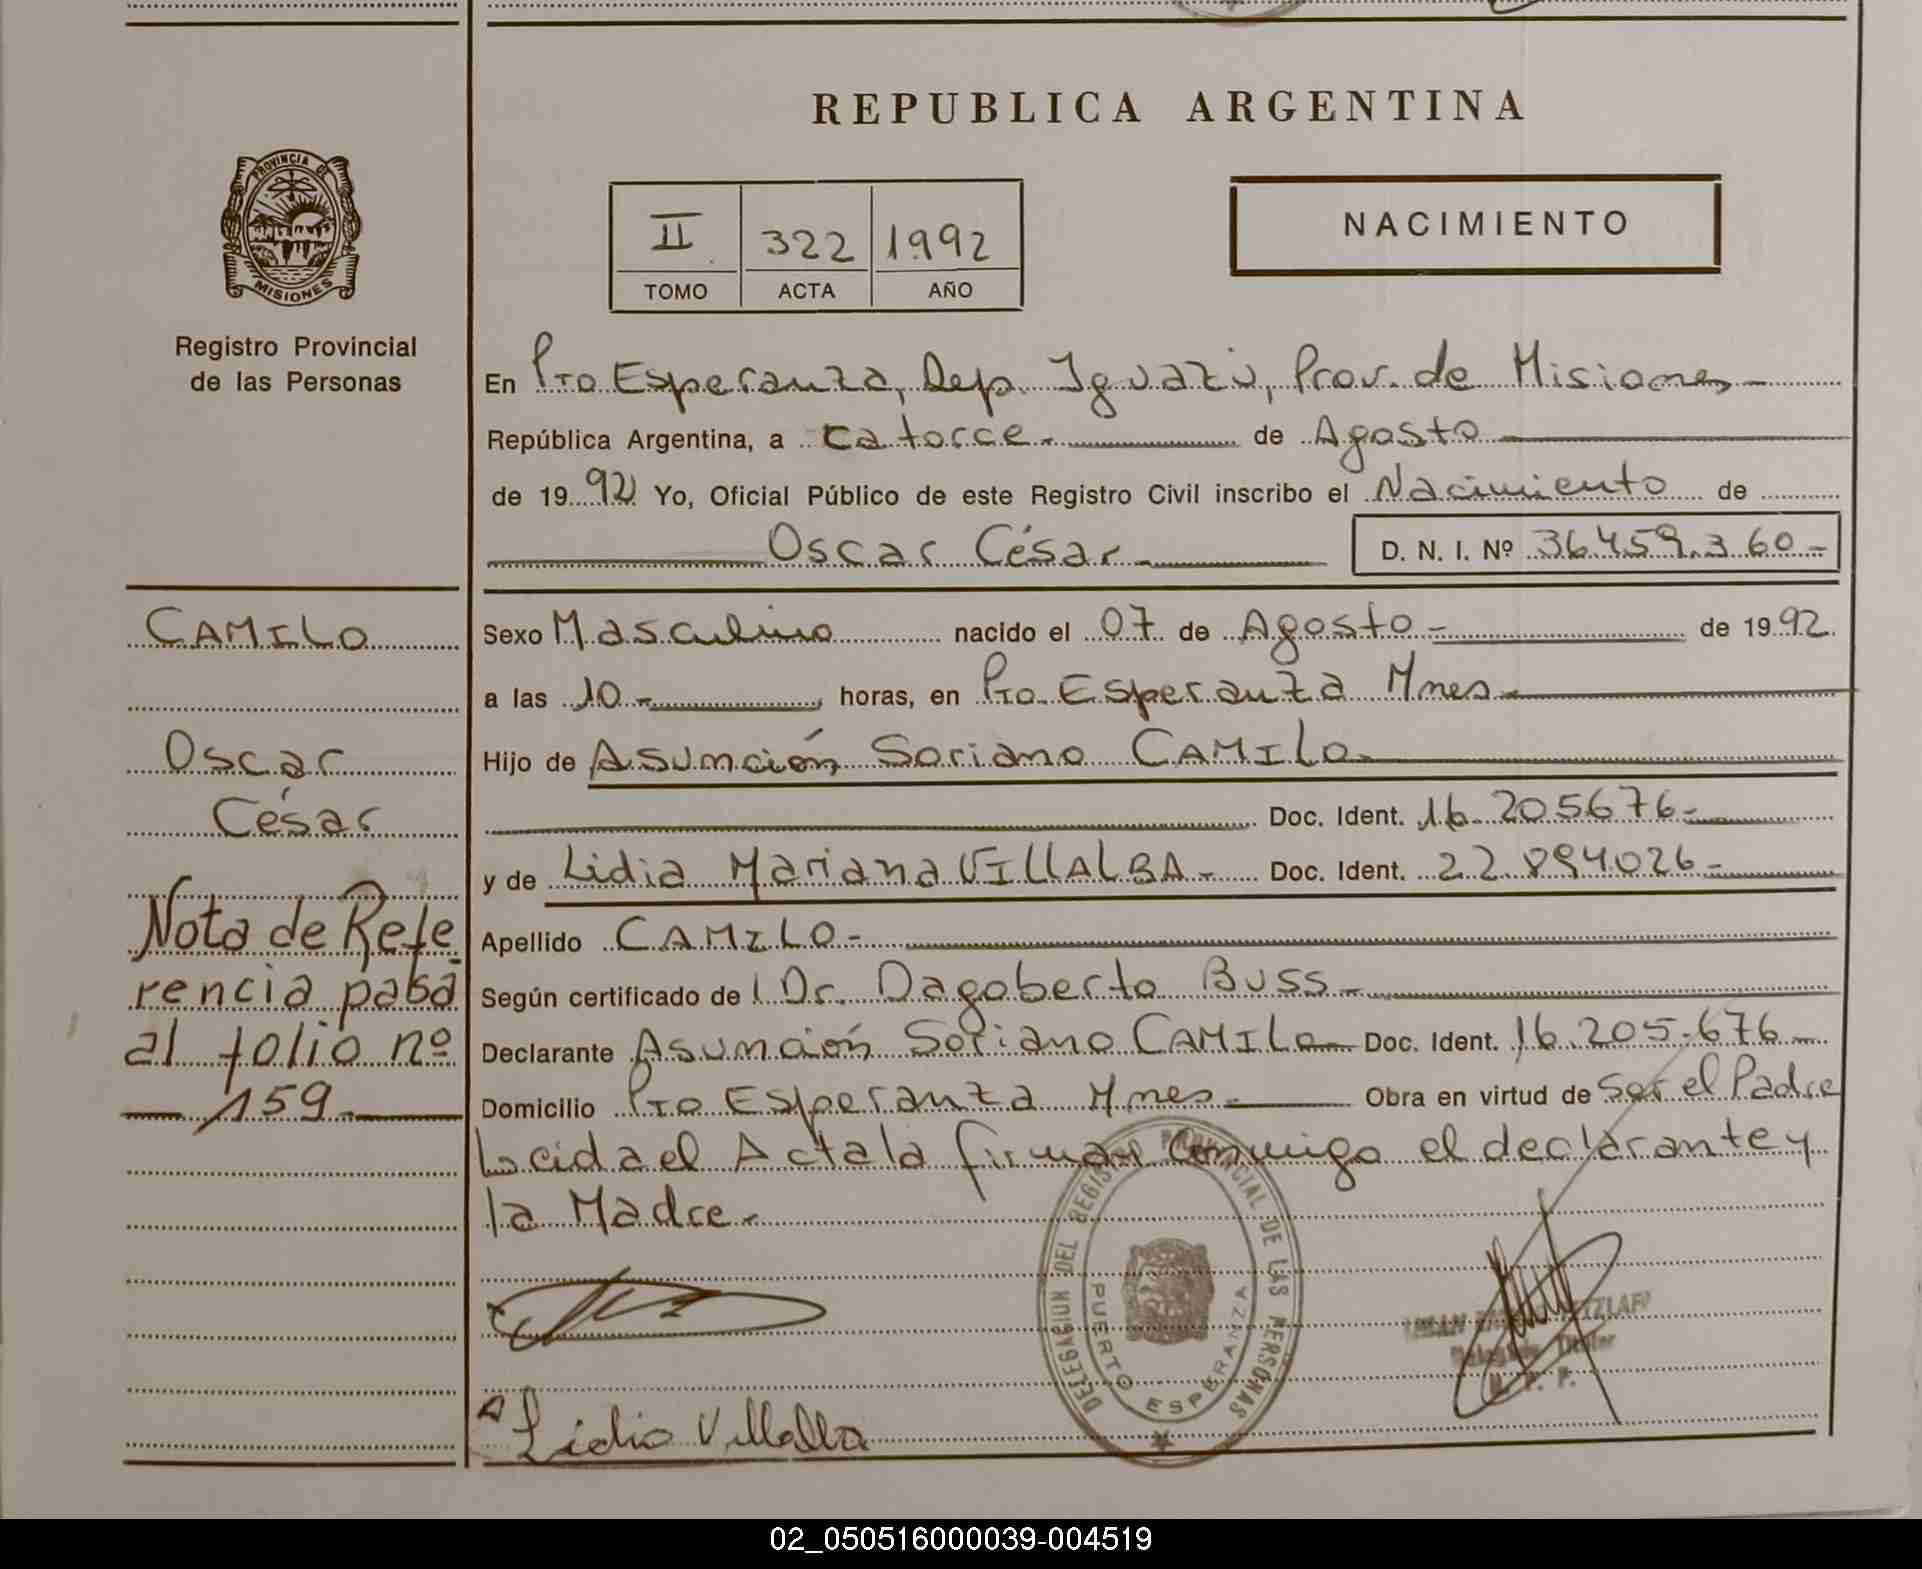 REPUBLICA ARGENTINA
PROVINCIA DE
MISIONES
Registro Provincial
de las Personas
II 322 1992
TOMO ACTA AÑO
NACIMIENTO
En Pto Esperanza, Dep. Iguazú, Prov. de Misiones
República Argentina, a catorce.- de Agosto
de 1992 Yo, Oficial Público de este Registro Civil inscribo el Nacimiento de
Oscar César.- D. N. I. Nº 36.459.360-
CAMILO
Oscar
César
Nota de Refe
rencia pasa
al folio nº
159.
Sexo Masculino nacido el 07 de Agosto- de 1992.
a las 10.- horas, en Pto. Esperanza Mnes.-
Hijo de Asunción Soriano CAMILO.-
Doc. Ident. 16.205676-
y de Lidia Mariana VILLALBA.- Doc. Ident. 22.894026-
Apellido CAMILO-
Según certificado de l Dr. Dagoberto Buss.-
Declarante Asunción Soriano CAMILO Doc. Ident. 16.205.676-
Domicilio Pto Esperanza Mnes.- Obra en virtud de Ser el Padre
Leida el Acta la firman Conmigo el declarante y
la Madre.-
DELEGACION DEL REGISTRO PROVINCIAL DE LAS PERSONAS
PUERTO ESPERANZA
Titular
Lidia Villalba
02_050516000039-004519